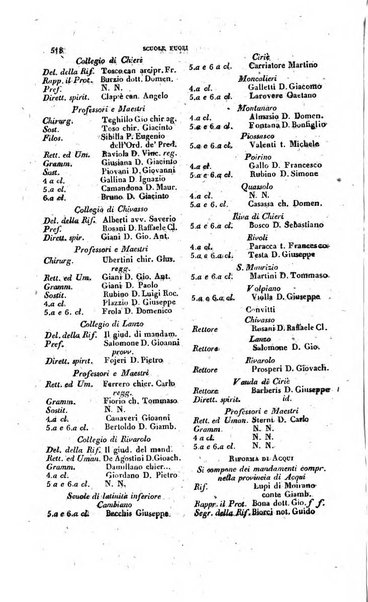 518
SCUOLE FUORI
Collegio di Chieri
Del. della Rif. Toscocan arcipr. Fr.
Rapp. il Prot. Burzio dott. Domen.
Pref. N. N.
Dirett. spirit. Clapiè can. Angelo
Professori e Maestri
Chirurg. Teghillo Gio chir ag.
Sost. Toso chir. Giacinto
Filos. Sibilla P. Eugenio
dell'Ord. de' Pred.
Rett. ed Um. Raviola D. Vinc. reg.
Gramm. Giusiana D. Giacinto
Sost. Piovani D. Giovanni
4.a cl. Gallina D. Ignazio
5.a cl. Camandona D. Maur.
6.a cl. Bruno D. Giacinto
Collegio di Chivasso
Del. della Rif. Alberti avv. Saverio
Pref. Rosani D. Raffaele Cl.
Dirett. spir. Giani D. Gio. Ant.
Professori e Maestri
Chirurg. Ubertini chir. Gius.
regg.
Rett. ed Um. Giani D. Gio. Ant.
Gramm. Giani D. Paolo
Sostit. Rubino D. Luigi Roc.
4.a cl. Plazzio D. Giusep.
5.a e 6.a cl. Frola D. Domenico
Collegio di Lanzo
Del. della Rif. Il giud. di mandam.
Pref. Salomone D. Gioanni
provv.
Dirett. spirit. Fojeri D. Pietro
Professori e Maestri
Rett. ed Um. Ferrero chier. Carlo
regg.
Gramm. Fiorio ch. Tommaso
Sostit. N. N.
4.a cl. Canaveri Gioanni
5.a e 6.a cl. Bertoldo D. Giamb.
Collegio di Rivarolo
Del. della Rif. Il giud. del mand.
Rett. ed Uman. De Agostini D. Gioach.
Gramm. Damillano chier...
4.a cl. Giordano D. Pietro
5.a e 6.a cl. N. N.
Scuole di latinità inferiore
Cambiano
5.a e 6.a cl. Becchis Giuseppe.
Ciriè
5.a e 6 a cl. Carriatore Martino
Moncalieri
4.a cl. Galletti D. Giacomo
5.a e 6.a cl. Larovere Gaetano
Montanaro
4.a cl. Almasio D. Domen.
5.a e 6.a cl. Fontana D. Bonfiglio
Piossasco
5.a e 6.a cl. Valenti t. Michele
Poirino
4.a cl. Gallo D. Francesco
5.a e 6.a cl. Rubino D. Simone
Quassolo
4.a cl. N. N.
5.a e 6.a cl. Casassa ch. Domen.
Riva di Chieri
5.a e 6.a cl. Bosco D. Sebastiano
Rivoli
4.a cl. Paracca t. Francesco
5.a e 6.a cl. Testa D. Giuseppe
S. Maurizio
5.a e 6.a cl. Martini D. Tommaso
Volpiano
5.a e 6.a cl. Violla D. Giuseppe
Convitti
Chivasso
Rettore Rosani D. Raffaele Cl.
Lanzo
Rettore Salomone D. Gio.
Rivarolo
Rettore Prosperi D. Giovach.
Vauda di Ciriè
Rettore Barberis D. Giuseppe
Dirett. spirit. id.
Professori e Maestri
Rett. ed Uman. Sterni D. Carlo
Gramm. N. N.
4 a cl. N. N.
5.a e 6.a cl. N. N.
RIFORMA DI ACQUI
Si compone dei mandamenti compr.
nella provincia di Acqui
Rif. Lupi di Moirano
conte Giamb.
Rappr. il Prot. Bona dott. Gio.
Segr. della Rif. Biorci not. Guido